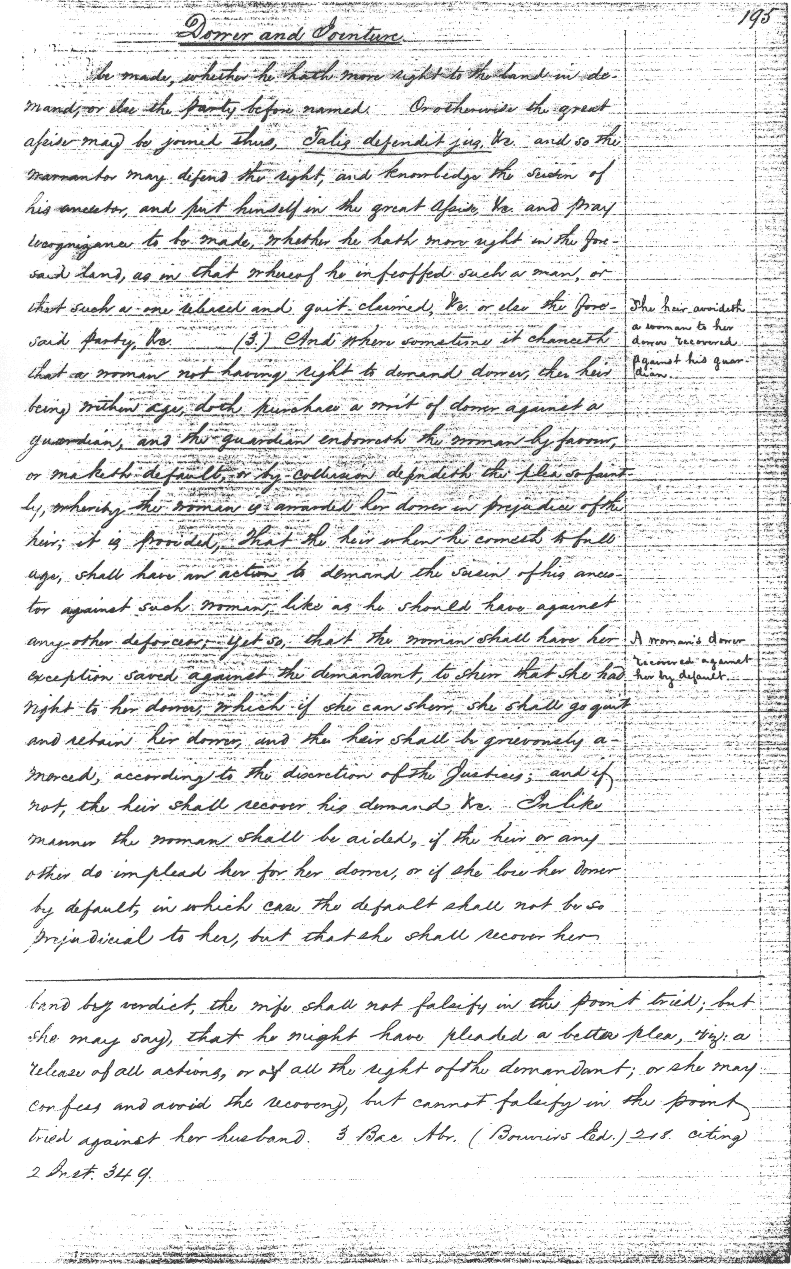 195
Dower and Jointure.
be made, whether he hath more right to the land in de-
mand, or else the party before named. Or otherwise the great
assise may be joined thus, Talis defendit jus, &c. and so the
warrantor may defend the right, and knowledge the seisin of
his ancestor, and put himself in the great Assise, &c. and pray
recognizance to be made, whether he hath more right in the fore-
said land, as in that whereof he infeoffed such a man, or
that such a one released and quit claimed, &c. or else the fore-
said party, &c. (3.) And where sometime it chanceth
that a woman not having right to demand dower, the heir
being within age, doth purchase a writ of dower against a
guardian, and the guardian endoweth the woman by favour,
or maketh default, or by collusion defendeth the plea so faint-
ly, whereby the woman is awarded her dower in prejudice of the
heir; it is provided, That the heir when he cometh to full
age, shall have an action to demand the seisin of his ances-
tor against such woman, like as he should have against
any other deforceor; yet so, that the woman shall have her
exception saved against the demandant, to shew that she had
right to her dower, which if she can shew, she shall go quit
and retain her dower, and the heir shall be grievously a-
merced, according to the discretion of the Justices; and if
not, the heir shall recover his demand &c. In like
manner the woman shall be aided, if the heir or any
other do implead her for her dower, or if she lose her dower
by default, in which case the default shall not be so
prejudicial to her, but that she shall recover her
The heir avoideth
a woman to her
dower recovered
against his guar-
dian.
A woman's dower
recovered against
her by default.
band by verdict, the wife shall not falsify in the point tried; but
she may say, that he might have pleaded a better plea, viz: a
release of all actions, or of all the right of the demandant; or she may
confess and avoid the recovery, but cannot falsify in the point
tried against her husband. 3 Bac Abr. (Bouviers Ed.) 218. citing
2 Inst. 349.